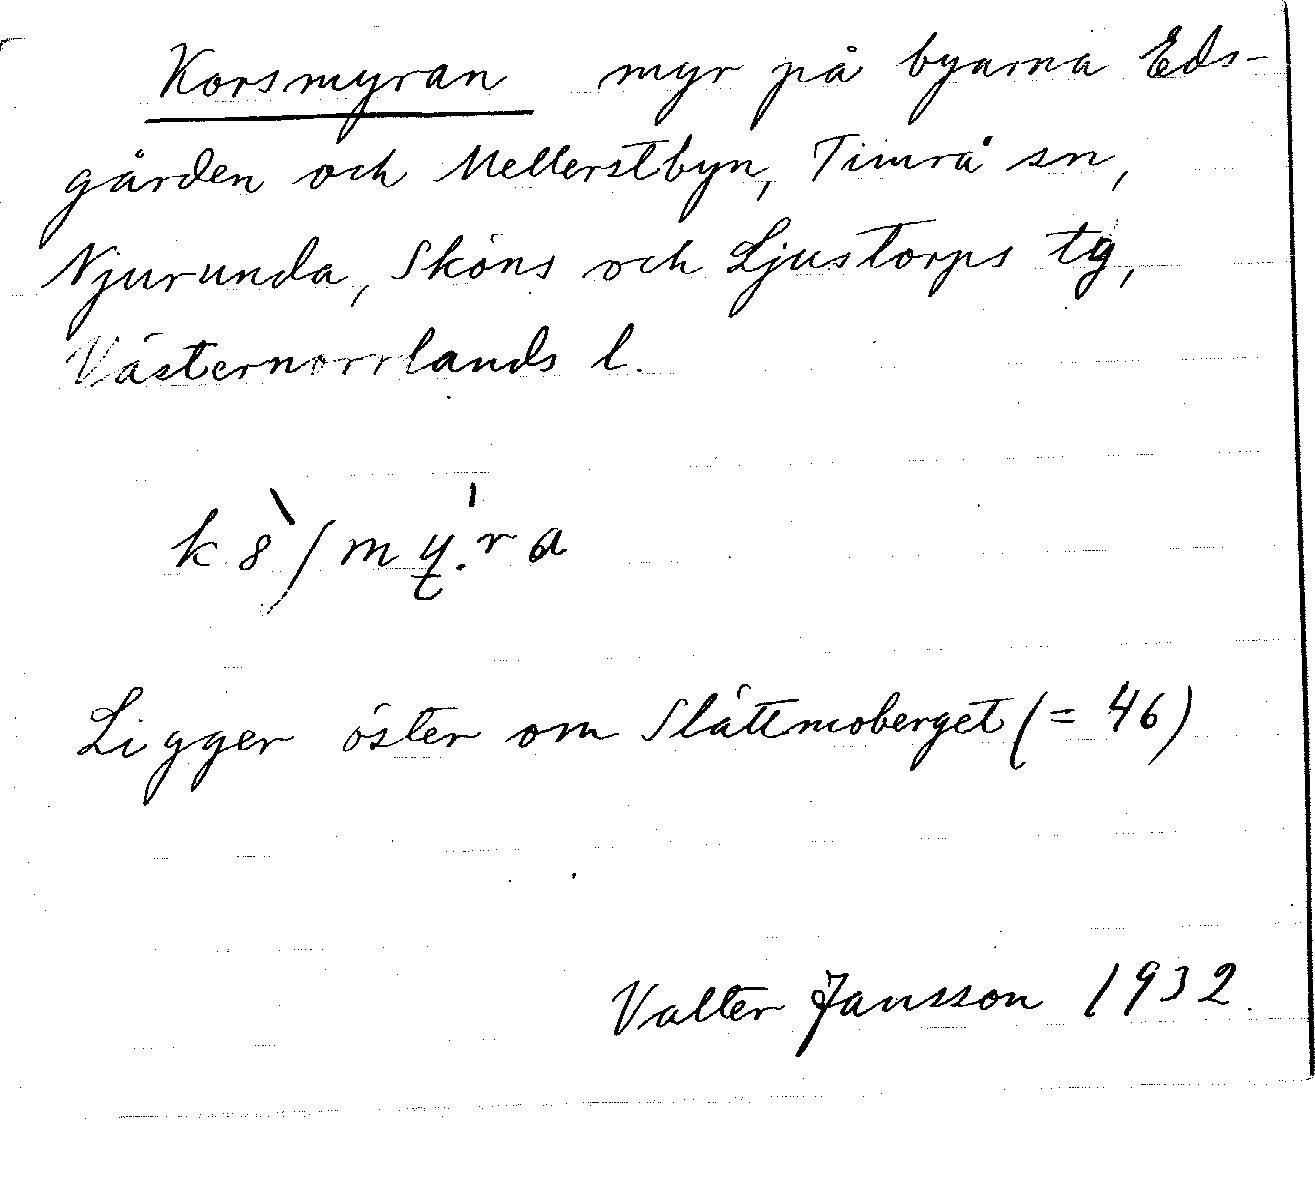 Korsmyran myr på byarna Eds-
gården och Mellerstbyn, Timrå sn,
Njurunda, Sköns och Ljustorps tg,
Västernorrlands l.
Ligger öster om Slättmoberget (= 46)
Valter Jansson 1932.